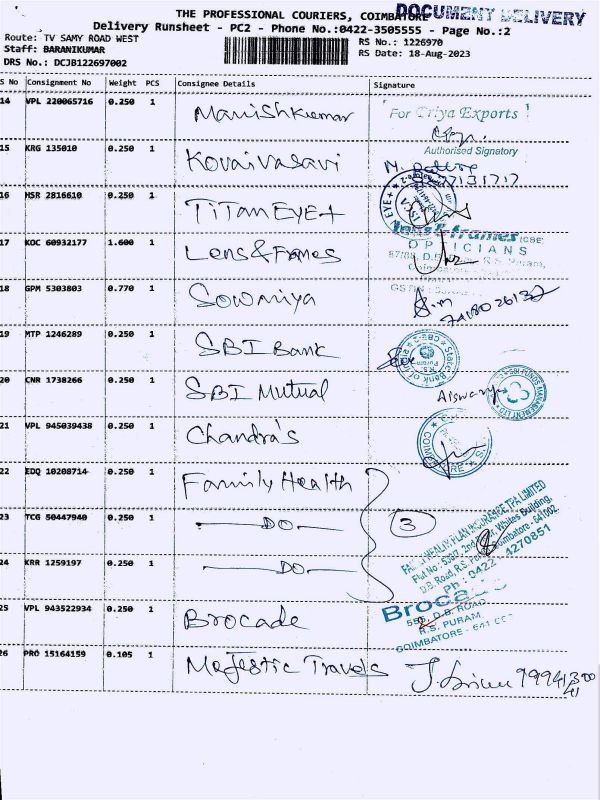 THE PROFESSIONAL COURIERS, COIMBATORE
DOCUMENT DELIVERY
Delivery Runsheet - PC2 - Phone No.:0422-3505555 - Page No.:2
Route: TV SAMY ROAD WEST
Staff: BARANIKUMAR
DRS No.: DCJB122697002
RS No.: 1226970
RS Date: 18-Aug-2023
S No Consignment No Weight PCS Consignee Details Signature
14 VPL 220065716 0.250 1 Manishkumar
For Criya Exports
Authorised Signatory
15 KRG 135010 0.250 1 Kovaivasavi
16 MSR 2816610 0.250 1 TiTanEYE+
EYE+
17 KOC 60932177 1.600 1 Lens&Frames
Lens & frames (CBE)
OPTICIANS
18 GPM 5303803 0.770 1 Sowmiya
19 MTP 1246289 0.250 1 SBI Bank
State Bank of India
20 CNR 1738266 0.250 1 SBI Mutual
Aiswarya
SBI FUNDS MANAGEMENT LTD
21 VPL 945039438 0.250 1 Chandra's
22 EDQ 10208714 0.250 1 Family Health
23 TCG 50447940 0.250 1 —DO—
3
24 KRR 1259197 0.250 1 —DO—
FAMILY HEALTH PLAN INSURANCE TPA LIMITED
Whites Building,
D.B. Road, R.S. Coimbatore - 641002
Ph : 0422 - 4270851
25 VPL 943522934 0.250 1 Brocade
Brocade
D.B. ROAD
R.S. PURAM,
COIMBATORE - 641
26 PRO 15164159 0.105 1 Majestic Travels